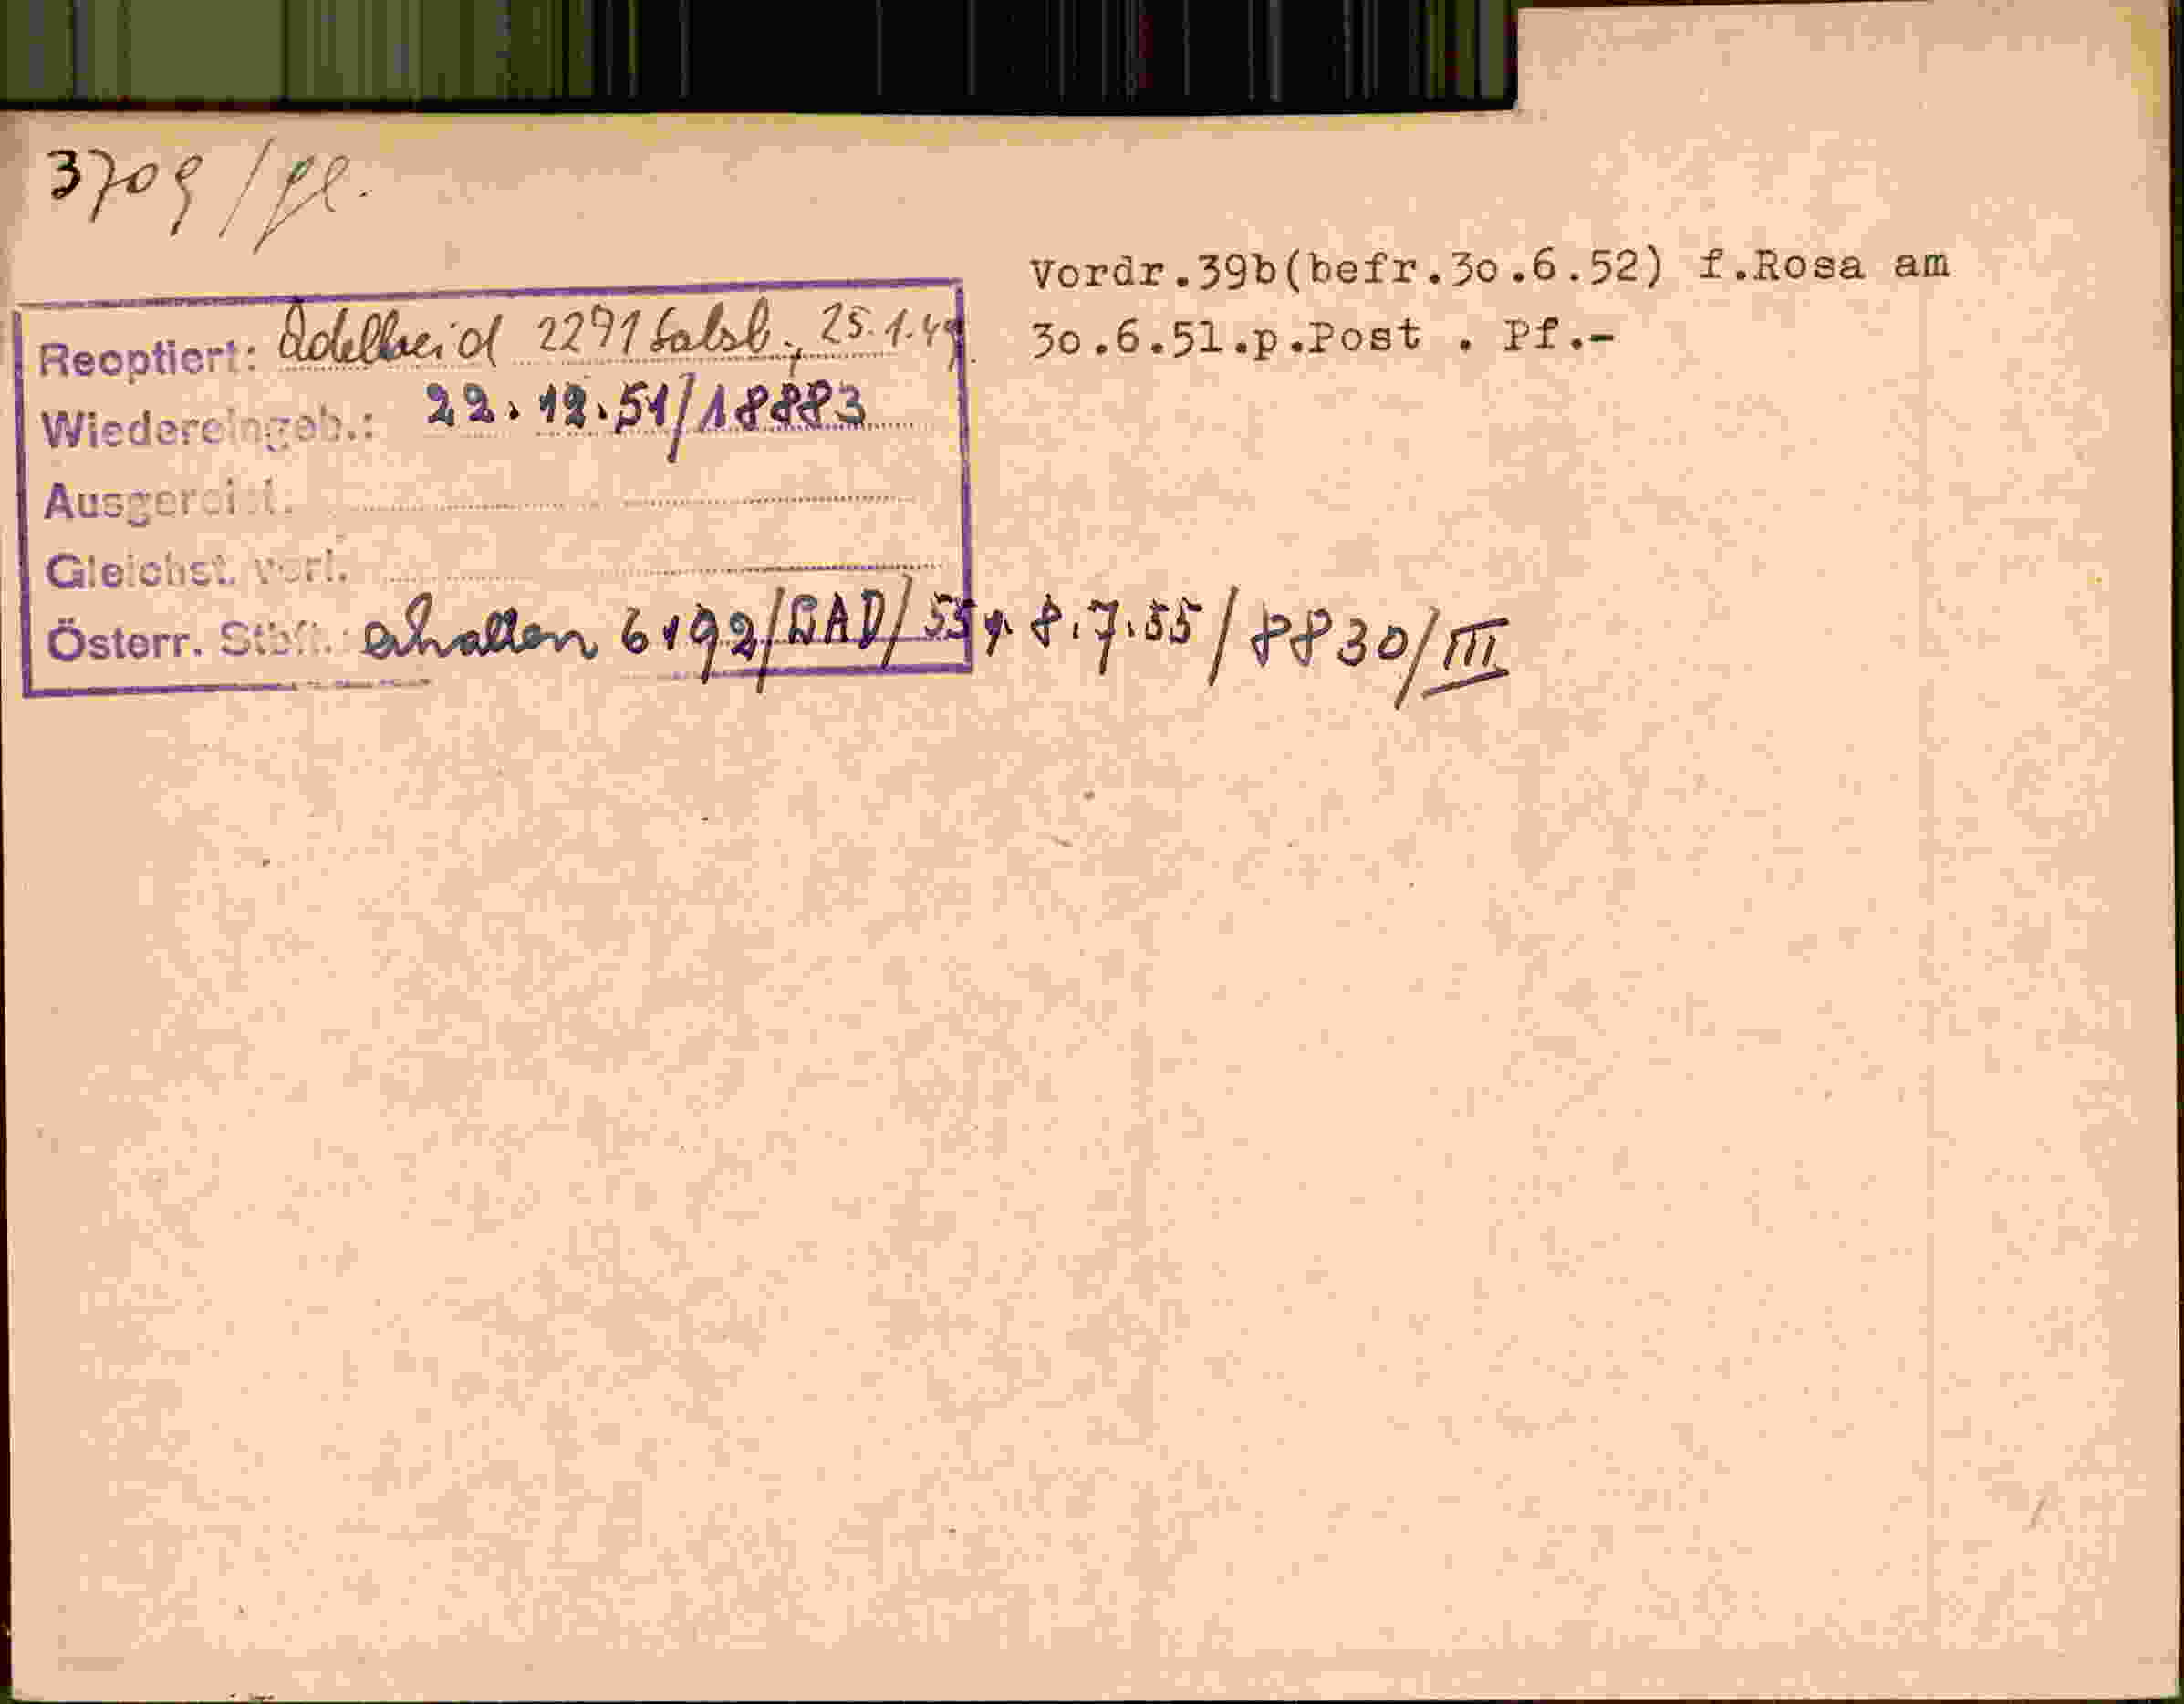 3709 /
Vordr.39b(befr.3o.6.52) f.Rosa am
3o.6.51.p.Post . Pf.-
Reoptiert: Adelheid 2271 Salzb., 25.1.49.
Wiedereingeb.: 22.12.51/18883
Ausgereist.
Gleichst. verl.
Österr. Stbft.: erhalten 6192/SAD/55 v. 8.7.55/8830/III